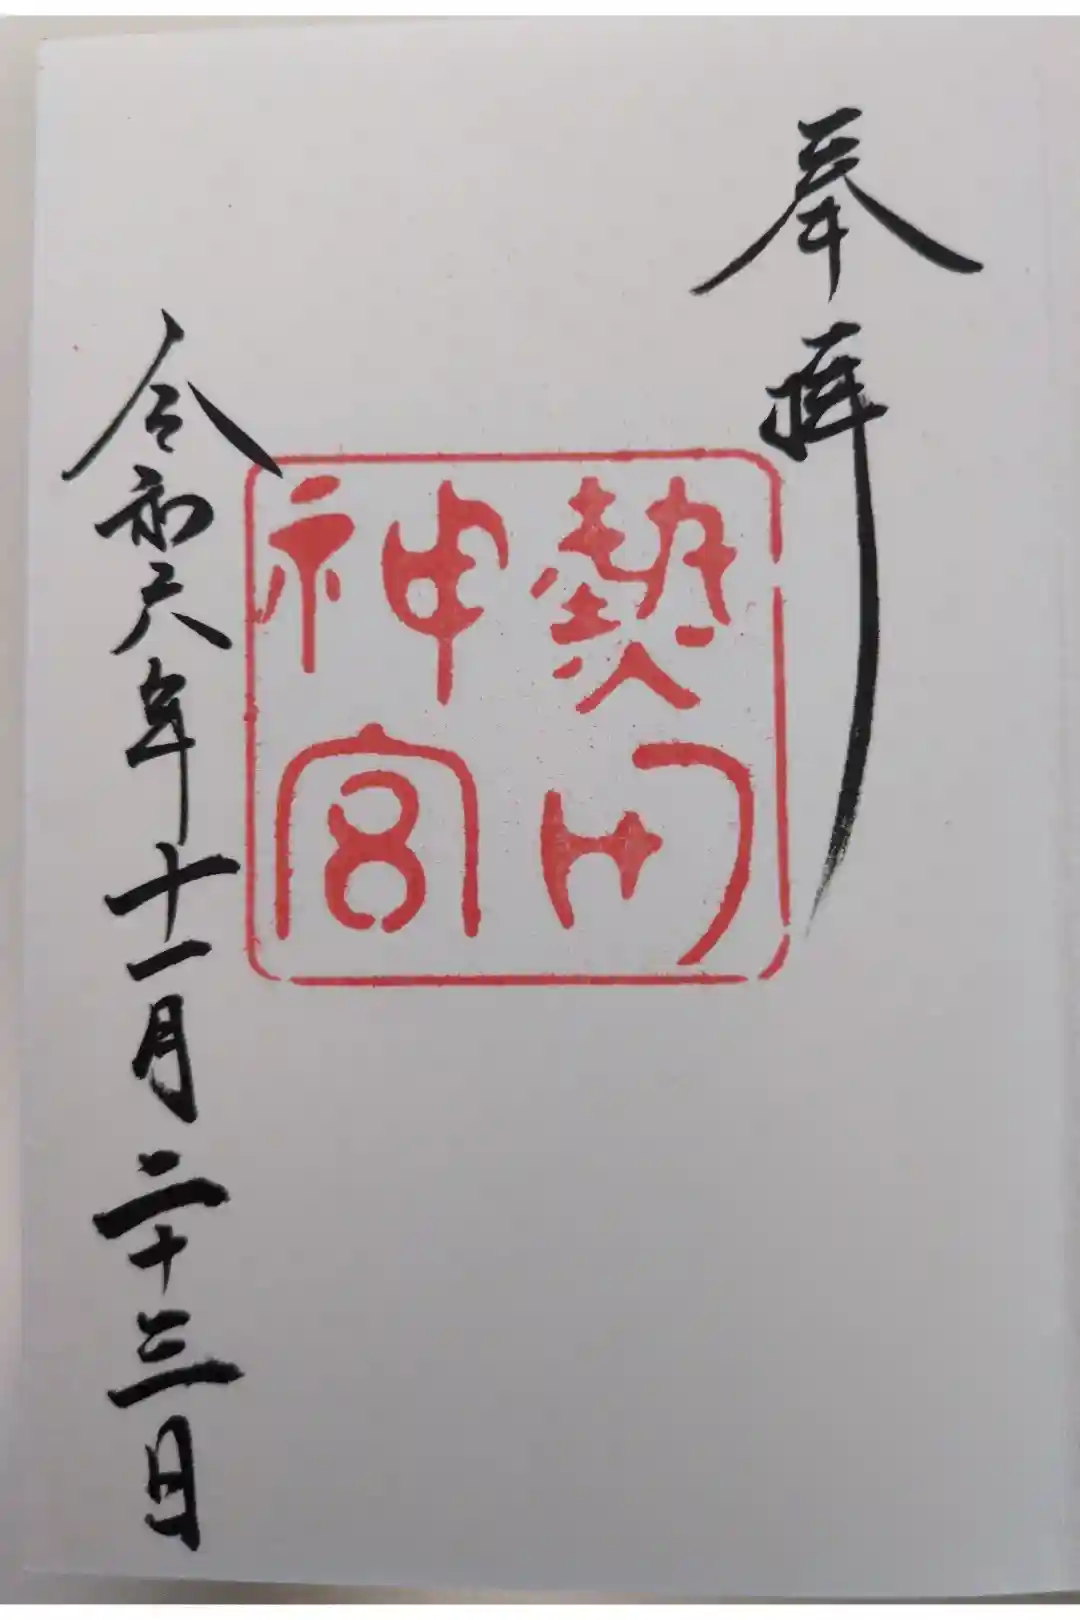 奉拝
熱田神宮
令和六年十一月二十三日